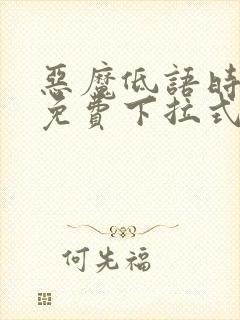 惡魔低語時
免費下拉式
何先福